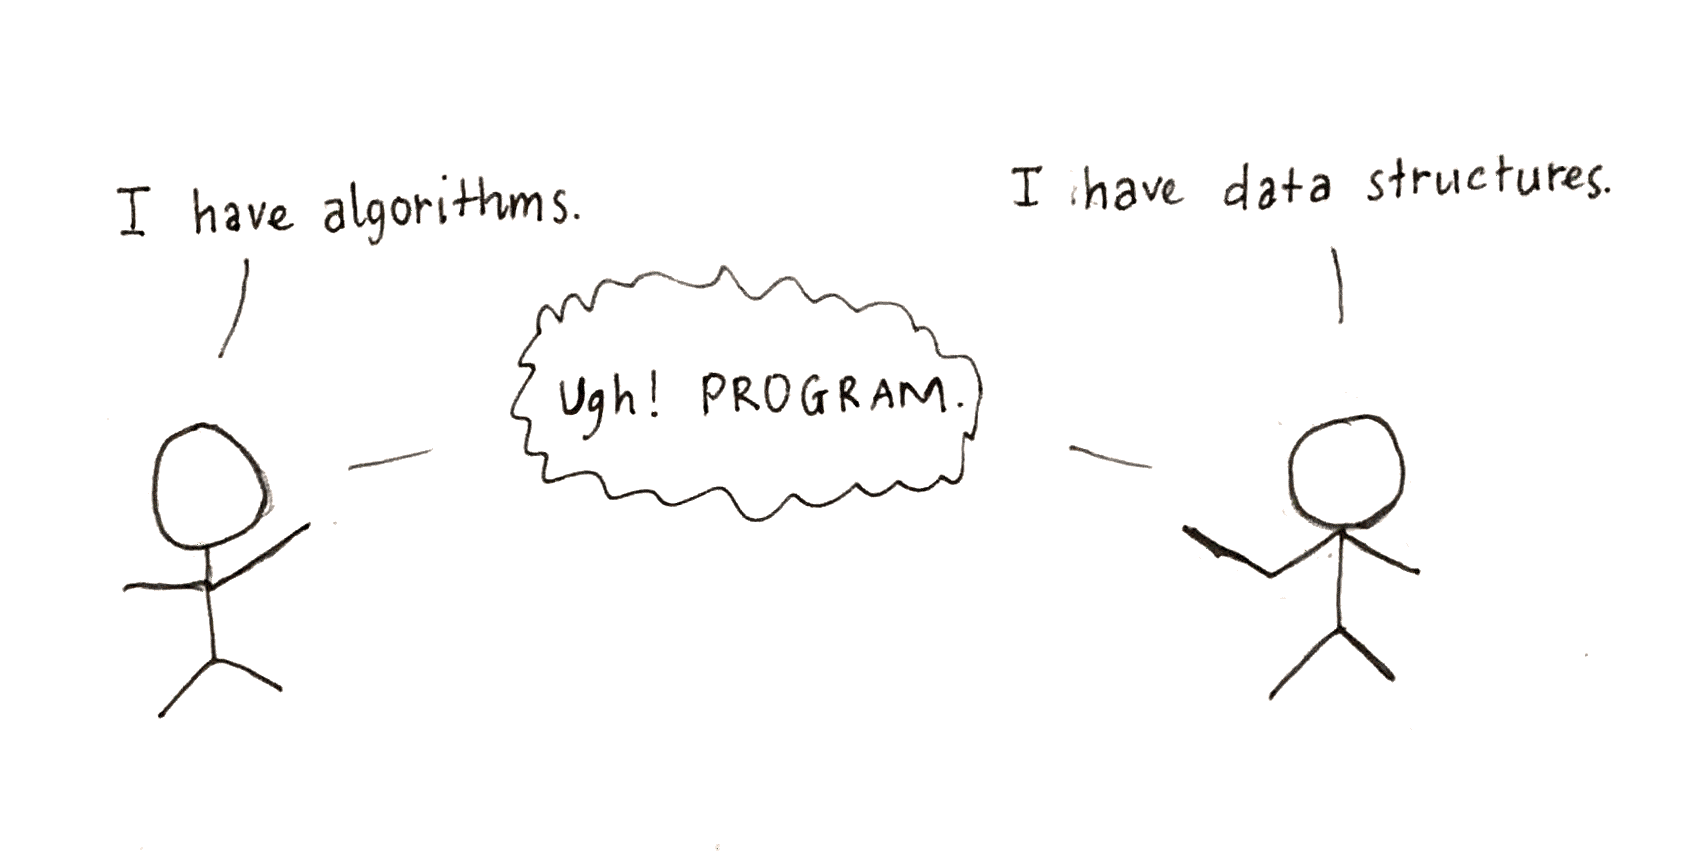 I have algorithms.
I have data structures.
Ugh! PROGRAM.